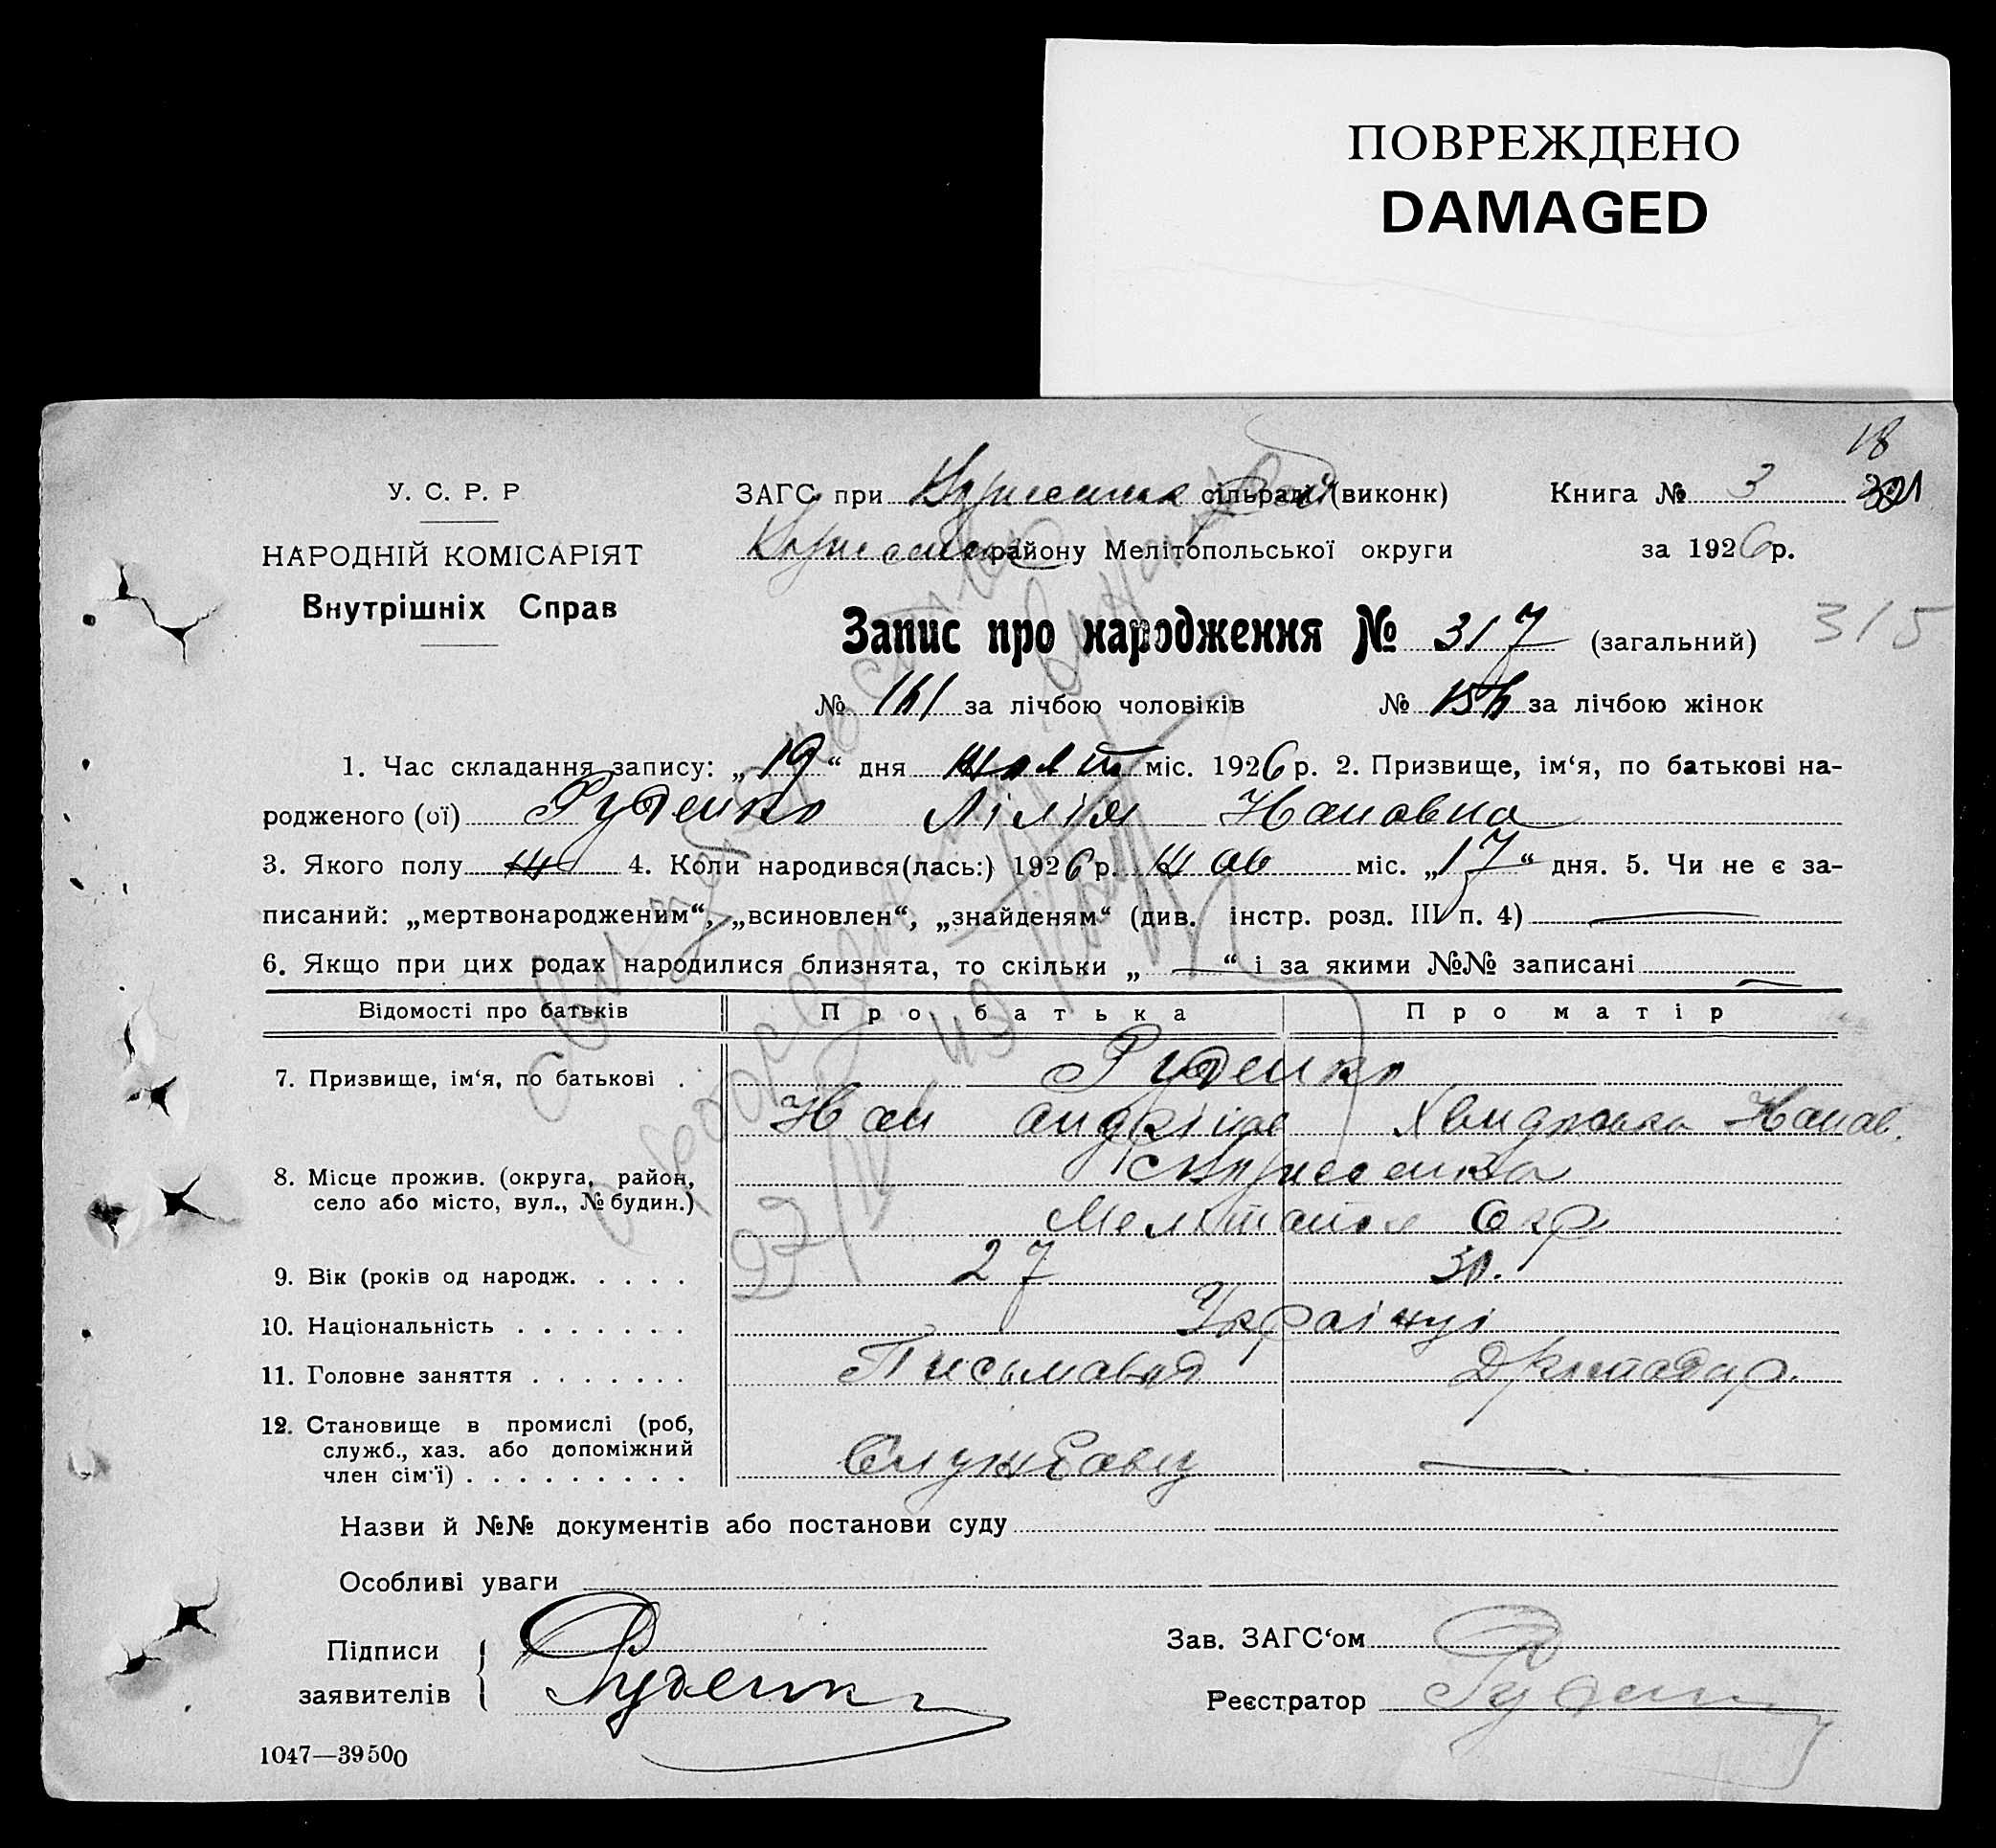 ПОВРЕЖДЕНО
DAMAGED
18
У. С. Р. Р
ЗАГС при сільраді (виконк) Книга № 3 321
НАРОДНІЙ КОМІСАРІЯТ
району Мелітопольської округи за 1926 р.
Внутрішніх Справ
Запис про народження № 317 (загальний) 315
№ 161 за лічбою чоловіків № 156 за лічбою жінок
1. Час складання запису: „19“ дня міс. 1926 р. 2. Призвище, ім‘я, по батькові на-
родженого (ої) Руденко Лілія Ивановна
3. Якого полу ж 4. Коли народився(лась:) 1926 р. міс. „17“ дня. 5. Чи не є за-
писаний: „мертвонародженим“, „всиновлен“, „знайденям“ (див. інстр. розд. III п. 4) —
6. Якщо при цих родах народилися близнята, то скільки „—“ і за якими №№ записані —
Відомості про батьків Про батька Про матір
7. Призвище, ім‘я, по батькові . Руденко
Иван Андріїв Иванов.
8. Місце прожив. (округа, район,
село або місто, вул., № будин.)
Окр
9. Вік (років од народж. . . . . 27 30.
10. Національність . . . . . . . Українці
11. Головне заняття . . . . . . .
12. Становище в промислі (роб,
служб., хаз. або допоміжний
член сім‘ї) . . . . . . . . . —
Назви й №№ документів або постанови суду
Особливі уваги
Підписи
заявителів Руденко
Зав. ЗАГС‘ом
Реєстратор Руденко
1047—39500